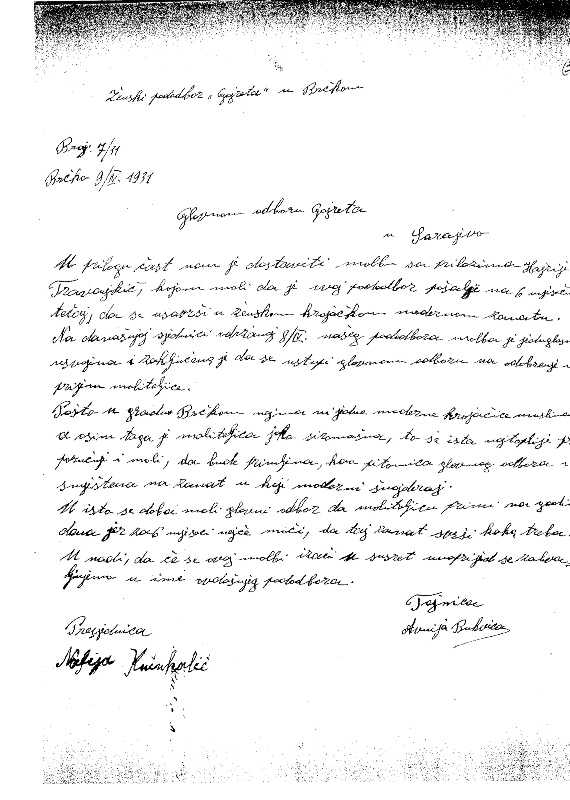 Ženski pododbor „Gajreta" u Brčkom
Broj. 7/31
Brčko 9/IV. 1931
Glavnom odboru Gajreta
u Sarajevo
U prilogu čast nam je dostaviti molbu sa prilozima Hajrije
Travančić, kojom moli da je ovaj pododbor pošalje na 6 mjeseci
tečaj, da se usavrši u ženskom krojačkom modernom zanatu.
Na današnjoj sjednici održanoj 8/IV. našeg pododbora molba je jednoglasno
usvojena i zaključeno je da se ustupi glavnom odboru na odobrenje i
prijem moliteljice.
Pošto u gradu Brčkom nema ni jedne moderne krojačice
a osim toga je moliteljica jako siromašna, to se ista najtoplije pre
poručuje i moli, da bude primljena, kao pitomica glavnog odbora i
smještena na zanat u koji moderni šnajderaj.
U isto se doba moli glavni odbor da moliteljicu primi na godinu
dana jer za 6 mjeseci neće moći, da taj zanat svrši kako treba.
U nadi, da će se ovoj molbi izaći u susret unaprijed se zahva
ljujemo u ime ovdašnjeg pododbora.
Tajnica
Predsjednica
Bukvica
Nafija